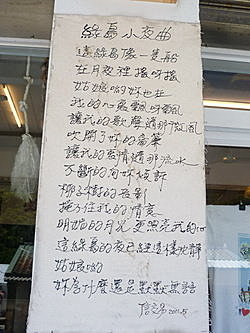 綠島小夜曲
這綠島像一隻船
在月夜裡搖呀搖
姑娘喲妳也在
我的心海飄呀飄
讓我的歌聲隨那微風
吹開了妳的窗簾
讓我的衷情隨那流水
不斷的向妳傾訴
椰子樹的長影
掩不住我的情意
明媚的月光更照亮我的心
這綠島的夜已經這樣沈靜
姑娘喲
妳為什麼還是默默無語